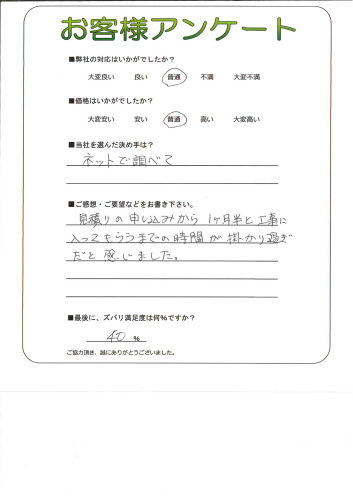 お客様アンケート
■弊社の対応はいかがでしたか？
大変良い 良い 普通 不満 大変不満
■価格はいかがでしたか？
大変安い 安い 普通 高い 大変高い
■当社を選んだ決め手は？
ネットで調べて
■ご感想・ご要望などをお書き下さい。
見積りの申し込みから 1ヶ月半と工事に
入ってもらうまでの時間が掛かり過ぎ
だと感じました。
■最後に、ズバリ満足度は何％ですか？
40 %
ご協力頂き、誠にありがとうございました。